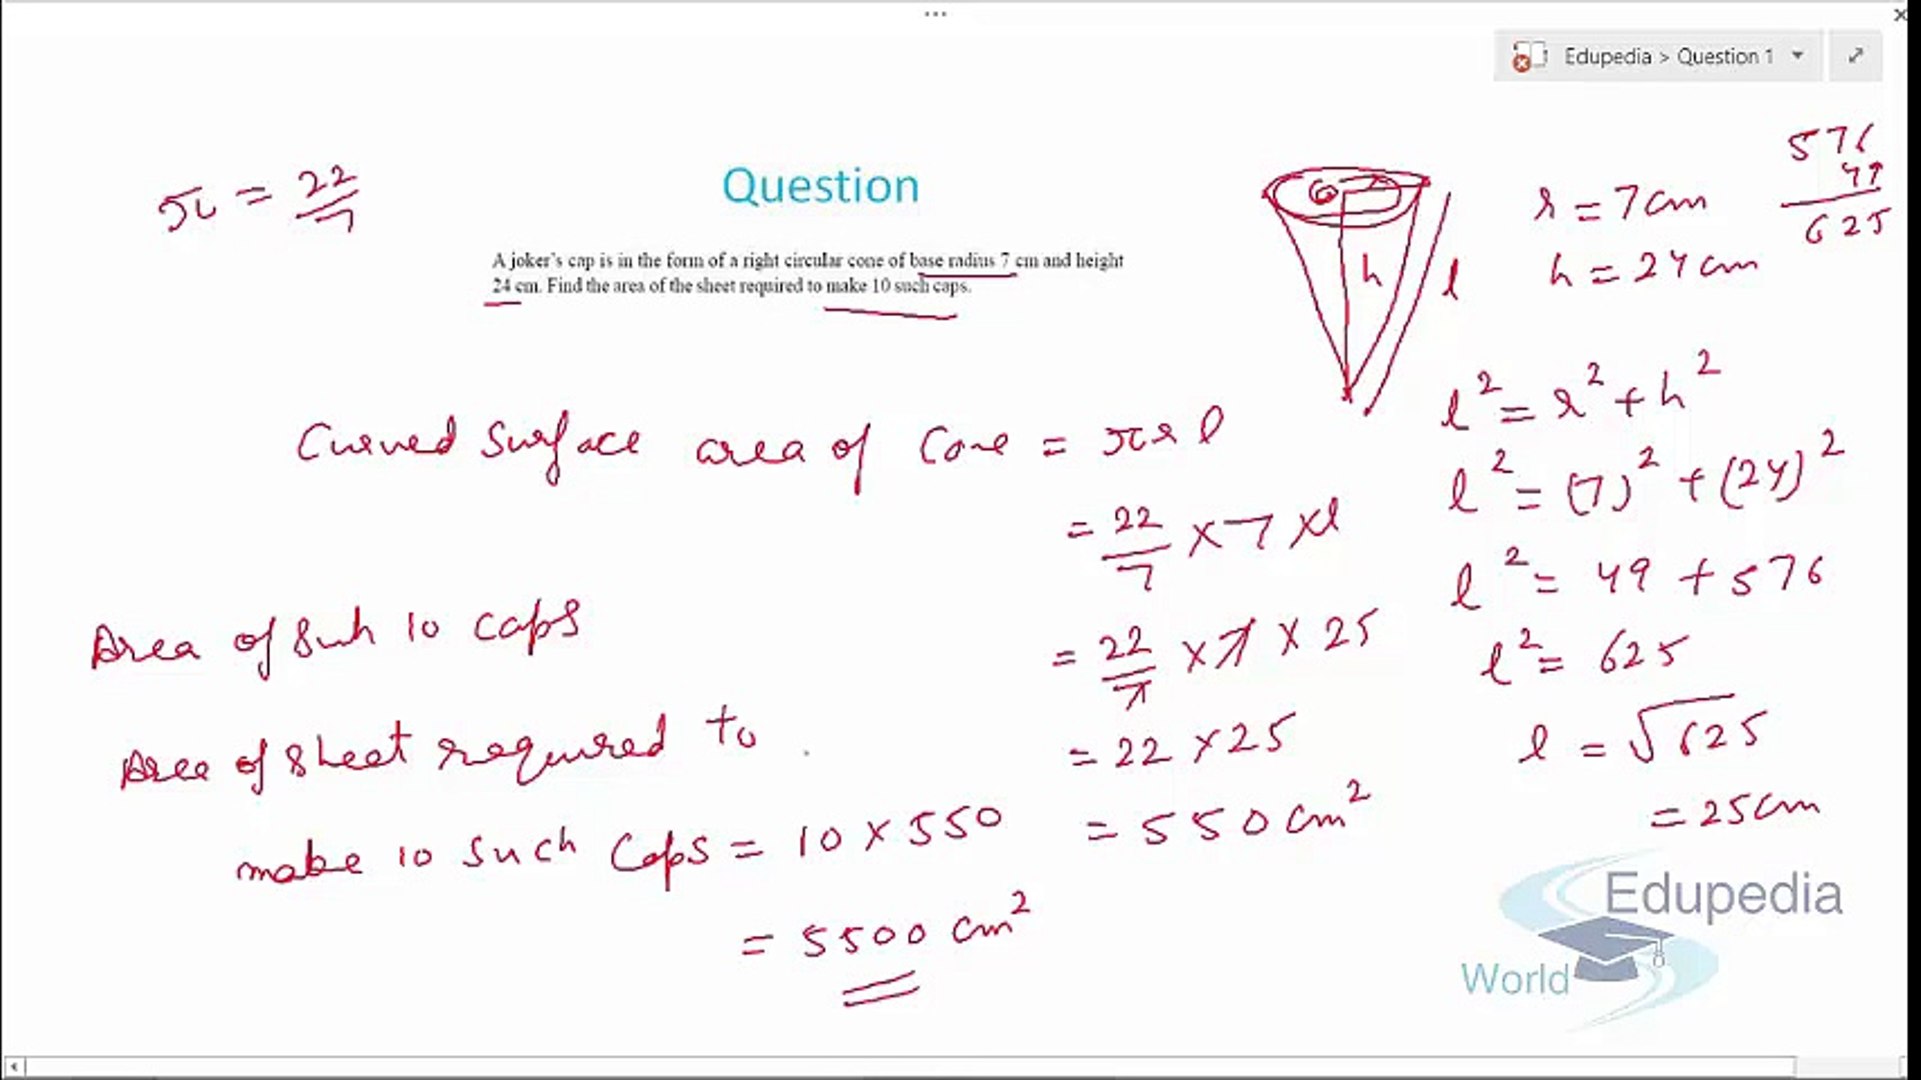 Edupedia > Question 1
Question
A joker's cap is in the form of a right circular cone of base radius 7 cm and height
24 cm. Find the area of the sheet required to make 10 such caps.
π = 22/7
h
l
r = 7cm
h = 24cm
576
49
625
l² = r² + h²
l² = (7)² + (24)²
l² = 49 + 576
l² = 625
l = √625
= 25cm
Curved Surface area of Cone = πrl
= 22/7 × 7 × l
= 22/7 × 7 × 25
= 22 × 25
= 550 cm²
Area of Such 10 caps
Area of sheet required to
make 10 such Caps = 10 × 550
= 5500 cm²
Edupedia
World